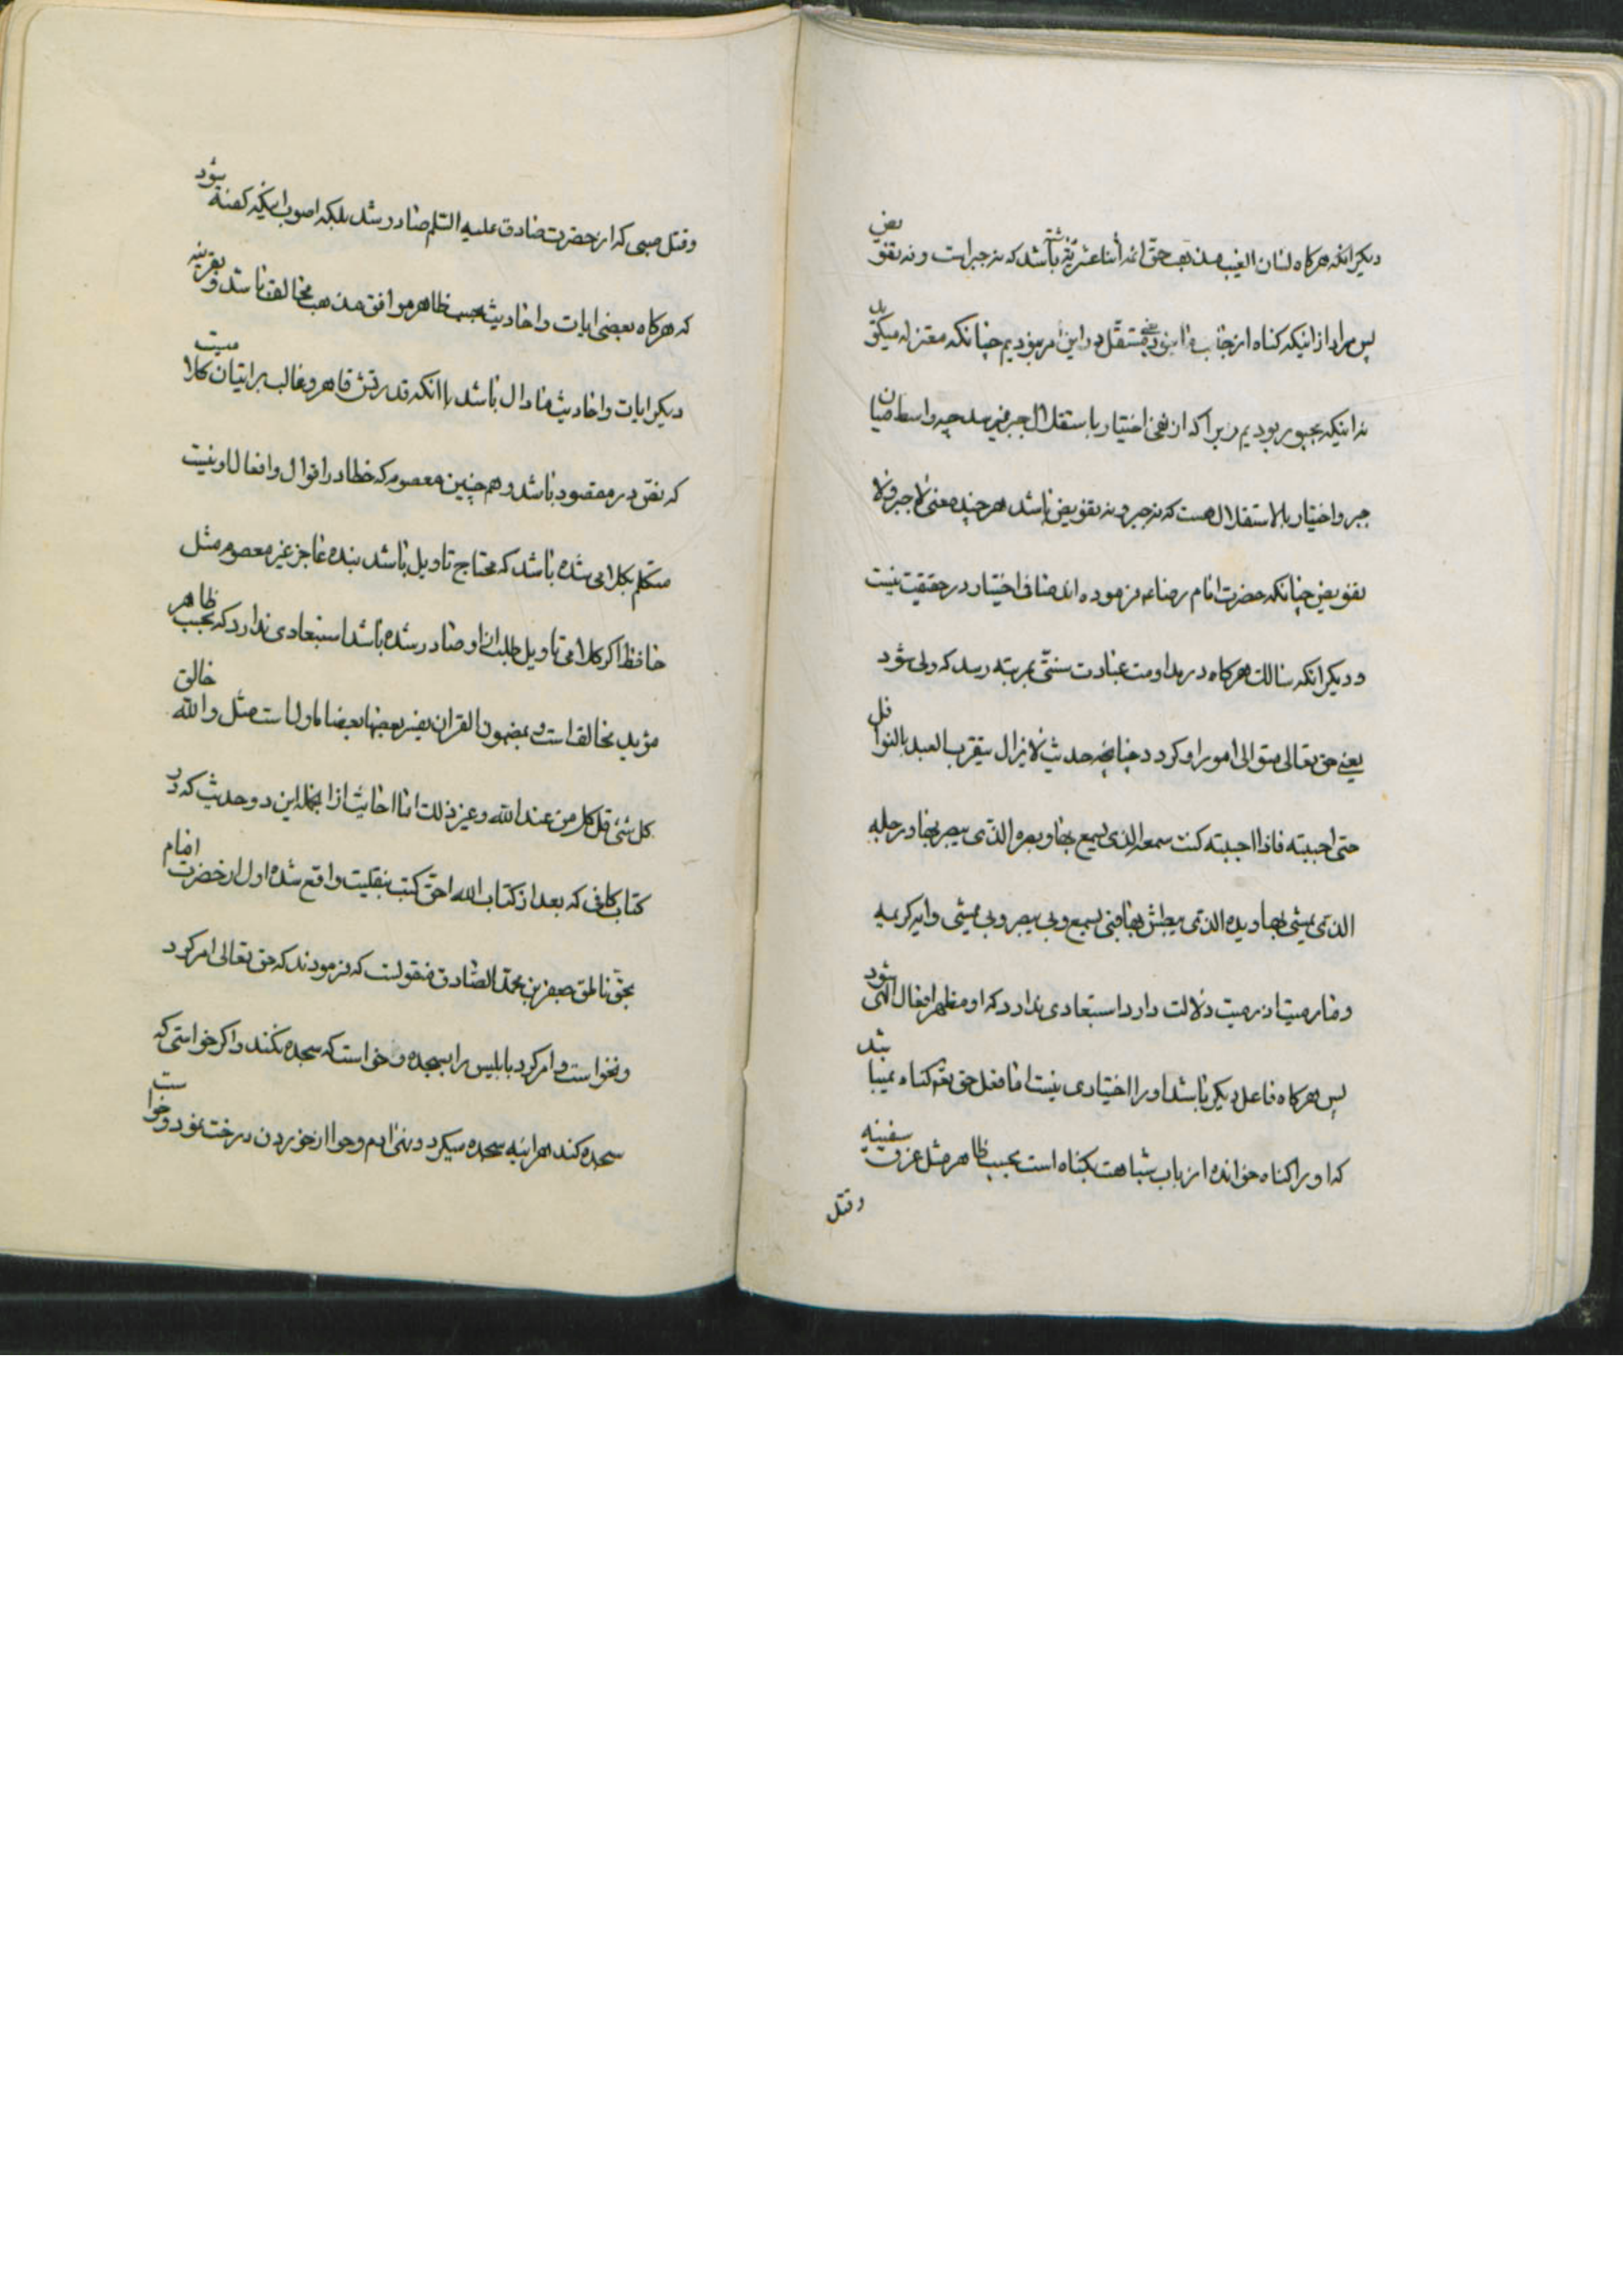 دیکر انکه هرکاه لسان الغیب مذهب حق ائمه اثنا عشریه داشته باشد که نه جبر است و نه تفویض
پس مراد از اینکه کناه از جانب ما نبود یعنی مستقل در این امر نبودیم چنانکه معتزله میکوید
نه اینکه مجبور بودیم زیرا که از نفی اختیار باستقلال جبر نمیرسد چه واسطه میان
جبر و اختیار بالاستقلال هست که نه جبر و نه تفویض باشد هر چند معنی لا جبر و لا
تفویض چنانکه حضرت امام رضا عه فرموده اند منافی اختیار در حقیقت نیست
و دیکر انکه سالک هرکاه در مداومت عبادت سنتی بمرتبه رسد که ولی شود
یعنی حق تعالی متوالی امور او کردد چنانچه حدیث لا یزال یتقرب العبد بالنوافل
حتی احببته فاذا احببته کنت سمعه الذی یسمع بها و بصره الذی یبصر بها و رجله
الذی یمشی بها و یده الذی یبطش بها فبی یسمع وبی یبصر وبی یمشی و ایه کریمه
و ما رمیت اذ رمیت دلالت دارد استبعادی ندارد که او مظهر افعال الهی شود
پس هرکاه فاعل دیکر باشد او را اختیاری نیست اما فعل حق تعه کناه نمیباشد
که او را کناه خوانده از باب شباهت بکناه است بحسب ظاهر مثل غرق سفینه
وقتل
وقتل صبی که از حضرت صادق علیه السلم صادر شد بلکه اصوب اینکه کفته شود
که هرکاه بعضی ایات و احادیث بحسب ظاهر موافق مذهب مخالف باشد و بقرینه
دیکر ایات و احادیث ما دال باشد با انکه قدرتش قاهر و غالب بر اتیان کلامیست
که نص در مقصود باشد و هم چنین معصوم که خطا در اقوال و افعال او نیست
متکلم بکلامی شده باشد که محتاج تاویل باشد بنده عاجز غیر معصوم مثل
حافظ اکر کلامی تاویل طلب از او صادر شده باشد استبعادی ندارد که بحسب ظاهر
مؤید مخالف است و بمضمون القران یفسر بعضها بعضا ماول است مثل و الله خالق
کل شئ قل کل من عند الله و غیر ذلک اما احادیث از انجمله این دو حدیث که در
کتاب کافی که بعد از کتاب الله احق کتب بنقلیت واقع شده اول از حضرت امام
بحق ناطق جعفر بن محمد الصادق منقولست که فرمودند که حق تعالی امر کرد
و نخواست و امر کرد بابلیس را بسجده و خواست که سجده نکند و اکر خواستی که
سجده کند هراینه سجده میکرد و نهی ادم و حوا از خوردن درخت نمود و خواست